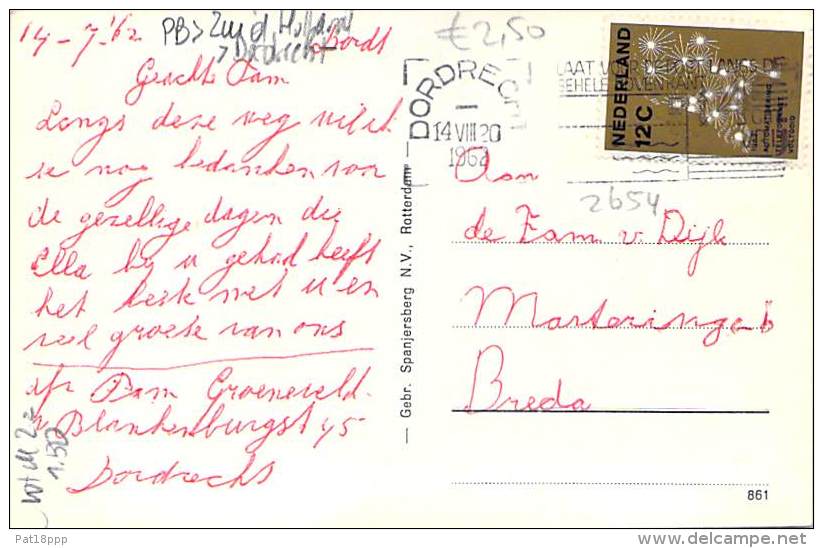 14-7-'62 Dordt
PB> Zuid Holland
> Dordrecht
€2,50
Geachte Fam
Langs deze weg wil ik
je nog bedanken voor
de gezellige dagen die
Ella bij u gehad heeft
het beste met u en
veel groete van ons
afz Fam Groeneveld.
v Blankenburgst 45
Dordrecht
WtM 2=
1.50
— Gebr. Spanjersberg N.V., Rotterdam —
DORDRECHT
14 VIII 20
1962
NEDERLAND
12C
2654
Aan
de Fam v. Dijk
Marteringe 6
Breda
861
© Pat18ppp
www.delcampe.net